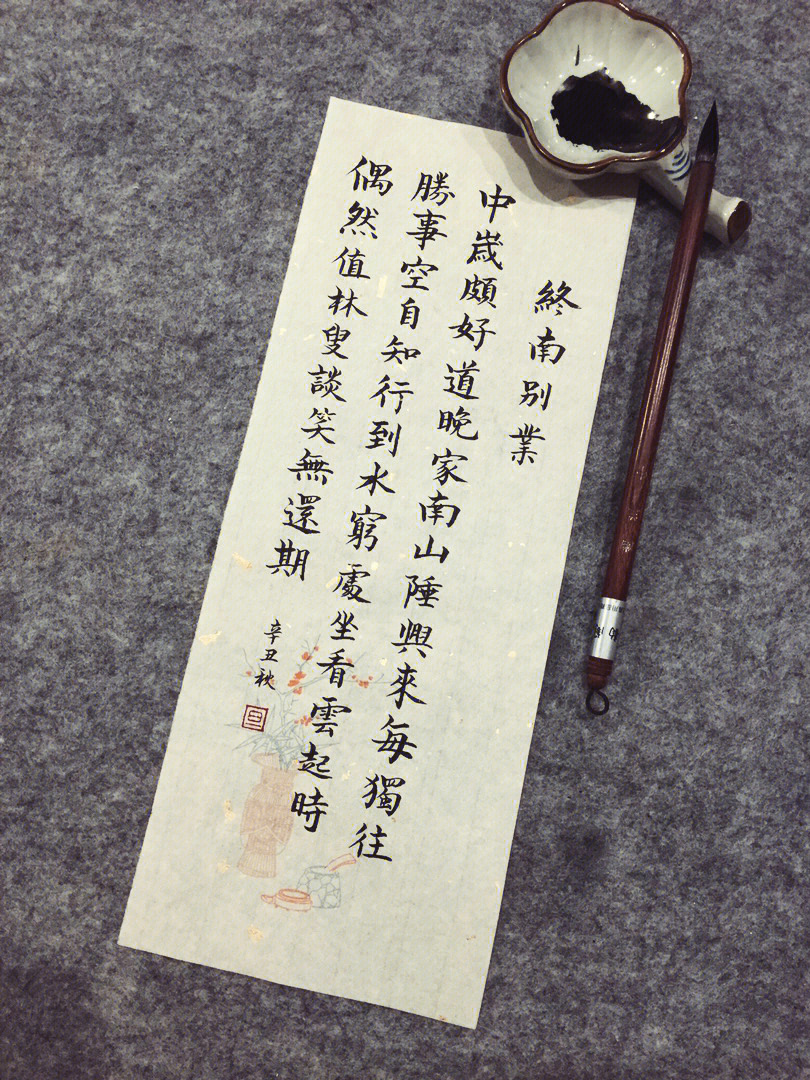 終南別業
中歲頗好道晚家南山陲興來每獨往
勝事空自知行到水窮處坐看雲起時
偶然值林叟談笑無還期
辛丑秋